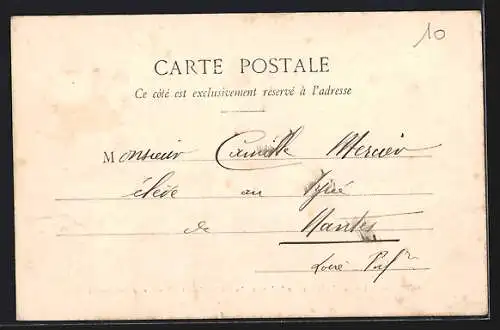 10
CARTE POSTALE
Ce côté est exclusivement réservé à l'adresse
Monsieur Camille Mercier
élève au Lycée
de Nantes
Loire Inf re